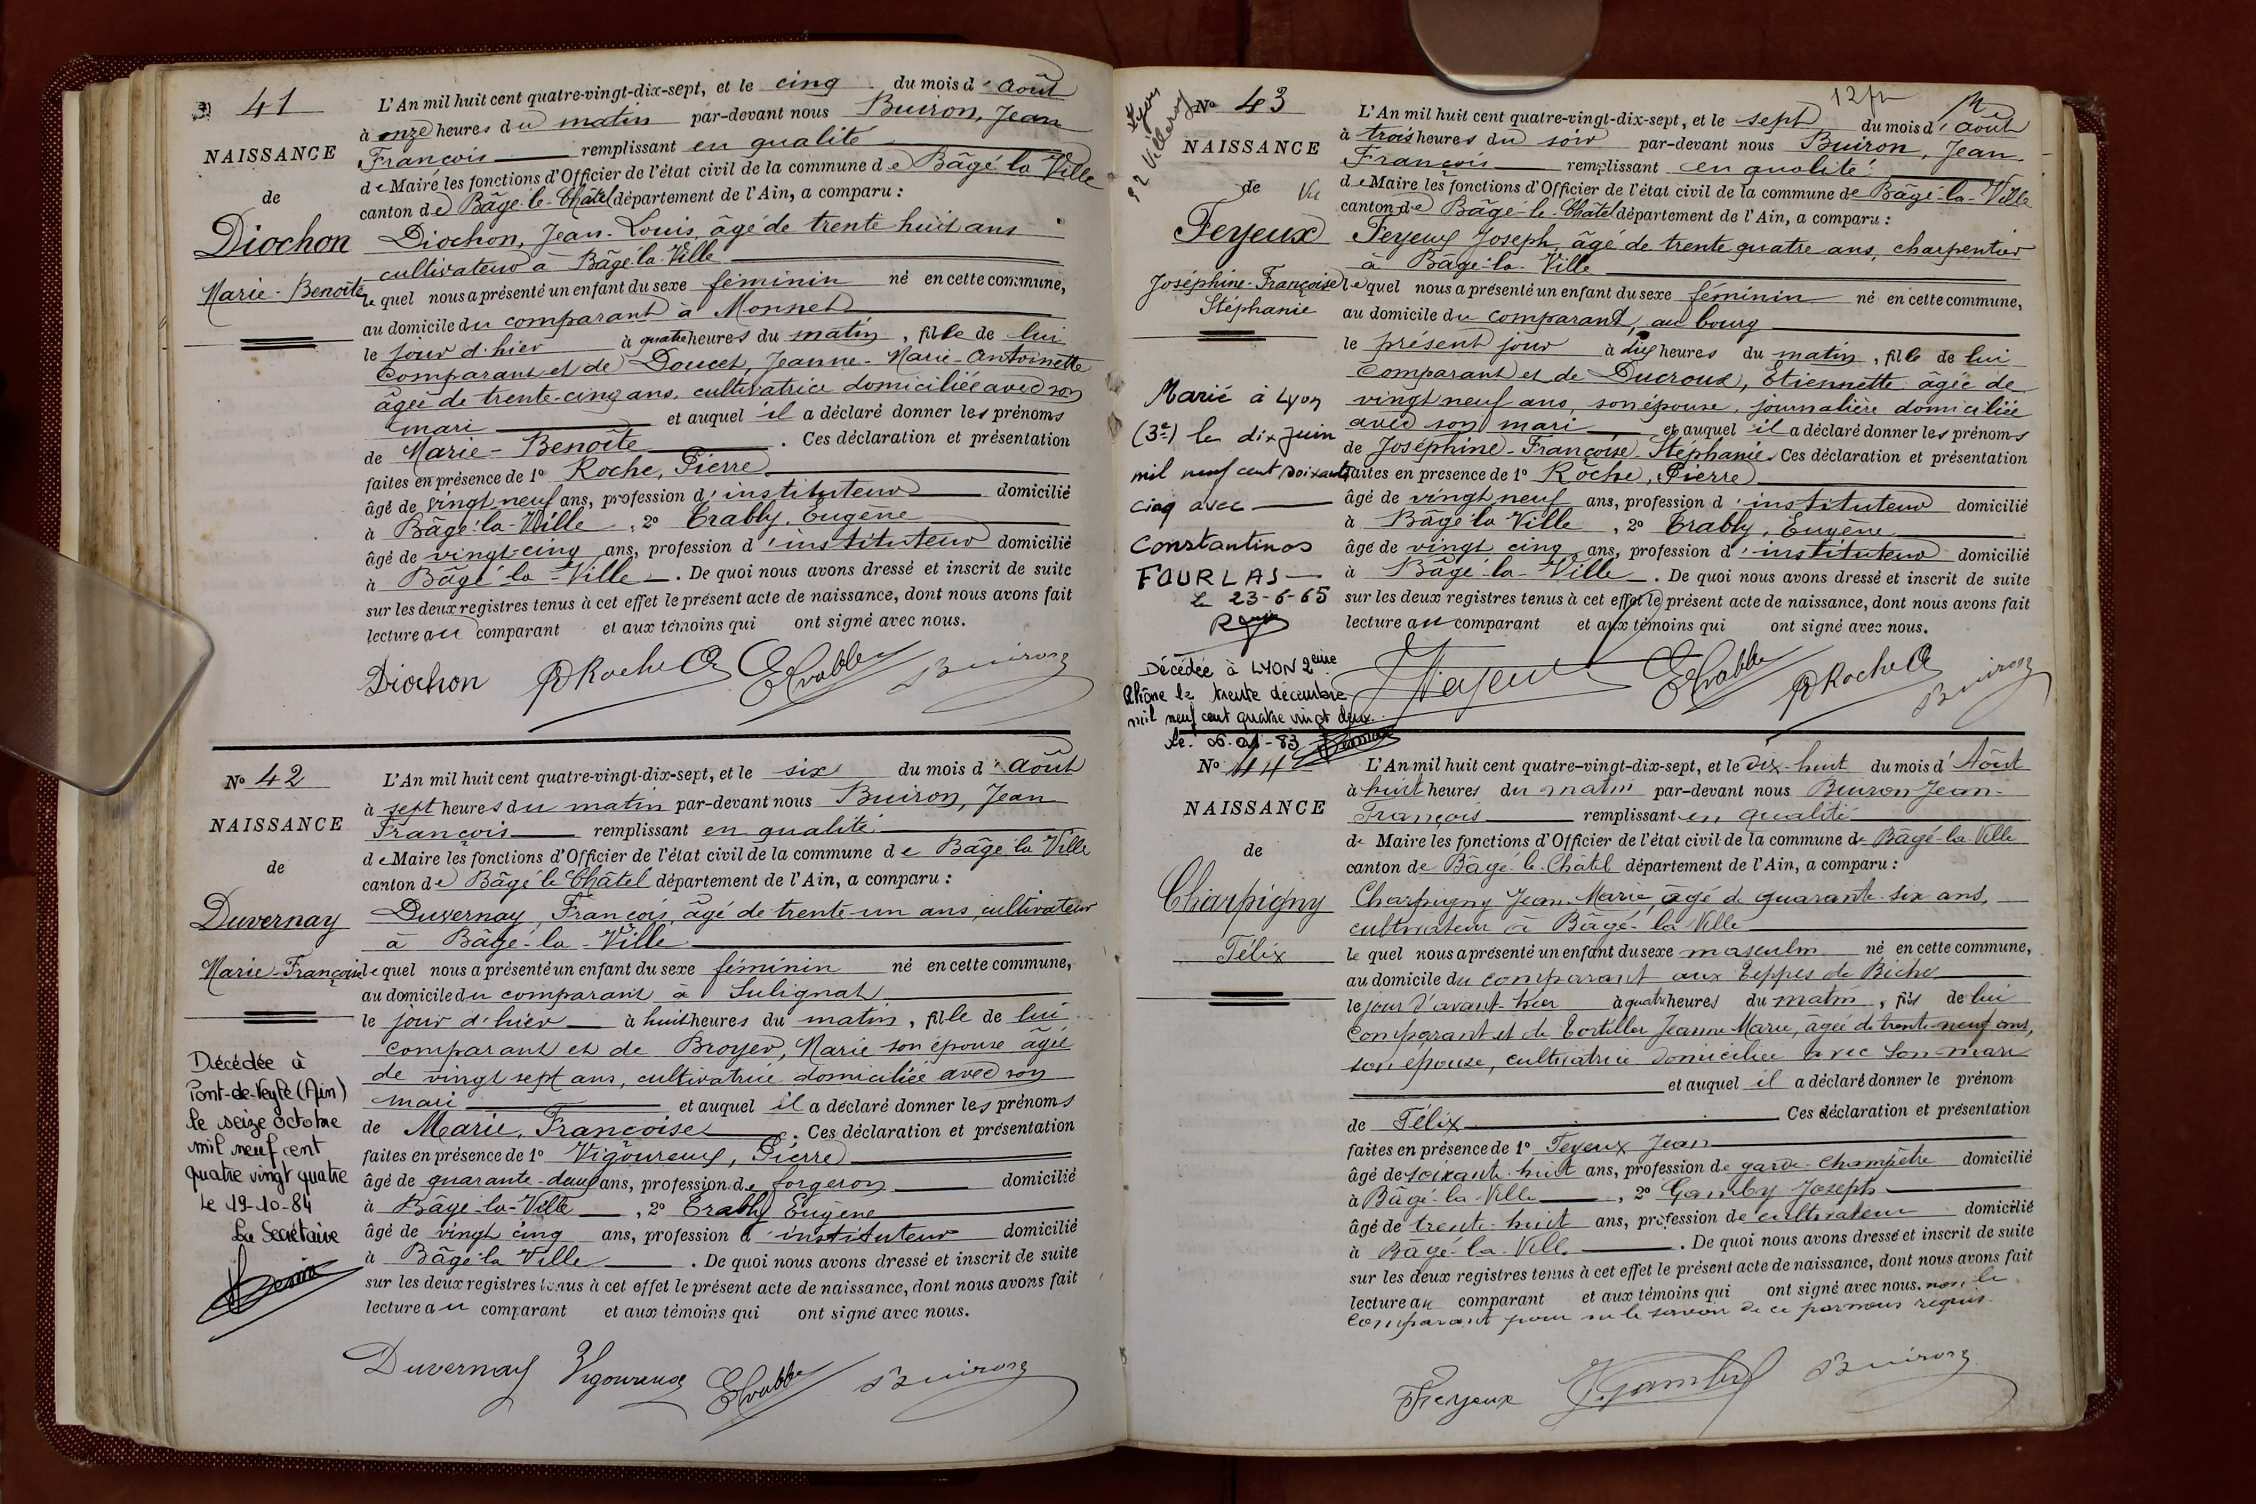 41
NAISSANCE
de
Diochon
Marie-Benoîte
L'An mil huit cent quatre-vingt-dix-sept, et le cinq du mois d'août
à onze heures du matin par-devant nous Buiron, Jean
François remplissant en qualité
de Maire les fonctions d'Officier de l'état civil de la commune de Bâgé-la-Ville
canton de Bâgé-le-Châtel département de l'Ain, a comparu :
Diochon, Jean-Louis, âgé de trente-huit ans
cultivateur à Bâgé-la-Ville
lequel nous a présenté un enfant du sexe féminin né en cette commune,
au domicile du comparant à Monnet
le jour d'hier à quatre heures du matin, fille de lui
comparant et de Doucet, Jeanne-Marie-Antoinette
âgée de trente-cinq ans, cultivatrice domiciliée avec son
mari et auquel il a déclaré donner les prénoms
de Marie-Benoîte. Ces déclaration et présentation
faites en présence de 1º Roche, Pierre
âgé de vingt neuf ans, profession d'instituteur domicilié
à Bâgé-la-Ville, 2º Trably, Eugène
âgé de vingt-cinq ans, profession d'instituteur domicilié
à Bâgé-la-Ville. De quoi nous avons dressé et inscrit de suite
sur les deux registres tenus à cet effet le présent acte de naissance, dont nous avons fait
lecture au comparant et aux témoins qui ont signé avec nous.
Diochon P Roche ETrably Buiron
Nº 42
NAISSANCE
de
Duvernay
Marie-Françoise
Décédée à
Pont-de-Veyle (Ain)
le seize octobre
mil neuf cent
quatre vingt quatre
Le 19-10-84
La Secrétaire
L'An mil huit cent quatre-vingt-dix-sept, et le six du mois d'août
à sept heures du matin par-devant nous Buiron, Jean
François remplissant en qualité
de Maire les fonctions d'Officier de l'état civil de la commune de Bâgé-la-Ville
canton de Bâgé-le-Châtel département de l'Ain, a comparu :
Duvernay, François, âgé de trente-un ans, cultivateur
à Bâgé-la-Ville
lequel nous a présenté un enfant du sexe féminin né en cette commune,
au domicile du comparant à Sulignat
le jour d'hier à huit heures du matin, fille de lui
comparant et de Broyer, Marie son épouse âgée
de vingt sept ans, cultivatrice domiciliée avec son
mari et auquel il a déclaré donner les prénoms
de Marie, Françoise. Ces déclaration et présentation
faites en présence de 1º Vigoureux, Pierre
âgé de quarante-deux ans, profession de forgeron domicilié
à Bâgé-la-Ville, 2º Trably Eugène
âgé de vingt cinq ans, profession d'instituteur domicilié
à Bâgé la Ville. De quoi nous avons dressé et inscrit de suite
sur les deux registres tenus à cet effet le présent acte de naissance, dont nous avons fait
lecture au comparant et aux témoins qui ont signé avec nous.
Duvernay Vigoureux ETrably Buiron
Lyon
52 Villeroy
Nº 43
NAISSANCE
de
Feyeux
Joséphine-Françoise
Stéphanie
Marié à Lyon
(3e) le dix juin
mil neuf cent soixante
cinq avec
Constantinos
FOURLAS
Le 23-6-65
Décédée à LYON 2ème
Rhône le trente décembre
mil neuf cent quatre vingt deux.
Le. 06-01-83
12 fr
L'An mil huit cent quatre-vingt-dix-sept, et le sept du mois d'août
à trois heures du soir par-devant nous Buiron, Jean
François remplissant en qualité
de Maire les fonctions d'Officier de l'état civil de la commune de Bâgé-la-Ville
canton de Bâgé-le-Châtel département de l'Ain, a comparu :
Feyeux Joseph, âgé de trente quatre ans, charpentier
à Bâgé-la-Ville
lequel nous a présenté un enfant du sexe féminin né en cette commune,
au domicile du comparant, au bourg
le présent jour à dix heures du matin, fille de lui
comparant et de Ducroux, Etiennette âgée de
vingt neuf ans, son épouse, journalière domiciliée
avec son mari et auquel il a déclaré donner les prénoms
de Joséphine-Françoise-Stéphanie. Ces déclaration et présentation
faites en présence de 1º Roche, Pierre
âgé de vingt neuf ans, profession d'instituteur domicilié
à Bâgé la Ville, 2º Trably, Eugène
âgé de vingt cinq ans, profession d'instituteur domicilié
à Bâgé-la-Ville. De quoi nous avons dressé et inscrit de suite
sur les deux registres tenus à cet effet le présent acte de naissance, dont nous avons fait
lecture au comparant et aux témoins qui ont signé avec nous.
Feyeux ETrably P Roche Buiron
Nº 44
NAISSANCE
de
Charpigny
Félix
L'An mil huit cent quatre-vingt-dix-sept, et le dix-huit du mois d'Août
à huit heures du matin par-devant nous Buiron Jean-
François remplissant en qualité
de Maire les fonctions d'Officier de l'état civil de la commune de Bâgé-la-Ville
canton de Bâgé-le-Châtel département de l'Ain, a comparu :
Charpigny Jean-Marie, âgé de quarante-six ans,
cultivateur à Bâgé-la-Ville
lequel nous a présenté un enfant du sexe masculin né en cette commune,
au domicile du comparant aux Teppes de Biche
le jour d'avant-hier à quatre heures du matin, fils de lui
comparant et de Tortiller Jeanne Marie, âgée de trente-neuf ans,
son épouse, cultivatrice domiciliée avec son mari
et auquel il a déclaré donner le prénom
de Félix Ces déclaration et présentation
faites en présence de 1º Feyeux Jean
âgé de soixante-huit ans, profession de garde-champêtre domicilié
à Bâgé-la-Ville, 2º Gamby Joseph
âgé de trente-huit ans, profession de cultivateur domicilié
à Bâgé-la-Ville. De quoi nous avons dressé et inscrit de suite
sur les deux registres tenus à cet effet le présent acte de naissance, dont nous avons fait
lecture au comparant et aux témoins qui ont signé avec nous. non le
comparant pour ne le savoir de ce par nous requis
Feyeux J Gamby Buiron